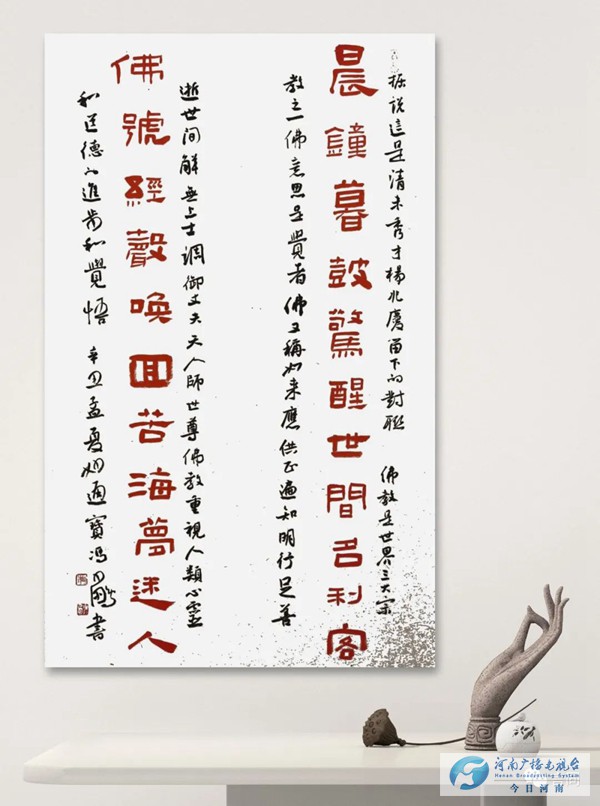 据说這是清末秀才楊兆慶留下的對聯 佛教是世界三大宗
晨鐘暮鼓驚醒世間名利客
教之一佛意思是覺者佛又稱如来應供正遍知明行足善
逝世间解無上士調御丈夫天人師世尊佛教重視人類心靈
佛號經聲喚回苦海夢迷人
和道德的進步和覺悟 辛丑孟夏 寶馮 書
河南广播电视台
Henan Broadcasting System
今日河南